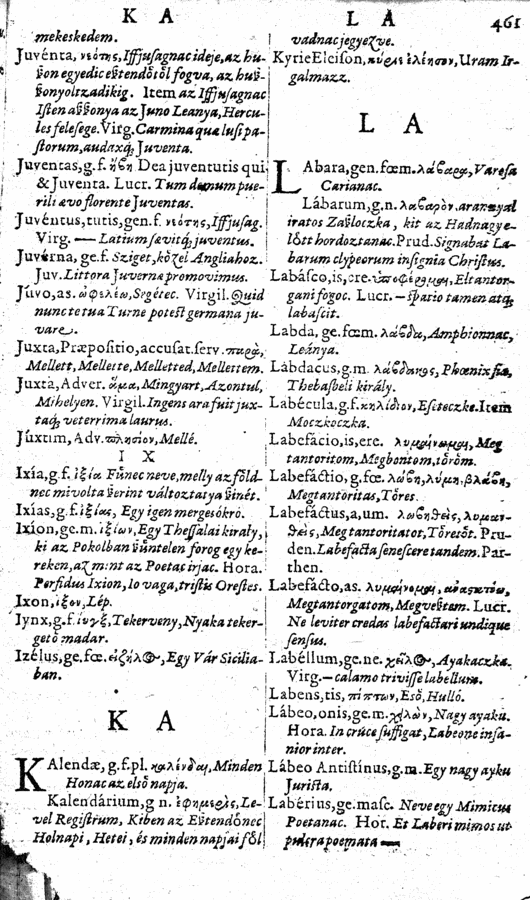 K A
L A 461
mekeskedem.
Juvénta, νεότης, Iffjuſagnac ideje, az hu-
ſon egyedic eſtendőtől fogva, az huſ-
ſonyoltzadikig. Item az Iffjuſagnac
Iſten aſſonya az Juno Leanya, Hercu-
les feleſege. Virg. Carmina qua luſi pa-
ſtorum, audaxq; Juventa.
Juventas, g.f. ἥβη Dea juventutis qui
& Juventa. Lucr. Tum demum pue-
rili ævo florente Juventas.
Juvéntus, tutis, gen.f. νεότης, Iffjuſag.
Virg. — Latium ſævitq; juventus.
Juvérna, ge.f. Sziget, közel Angliahoz.
Juv. Littora Juvernæ promovimus.
Júvo, as. ὠφελέω, Segétec. Virgil. Quid
nunc te tua Turne poteſt germana ju-
vare.
Juxta, Præpoſitio, accuſat. ſerv. παρὰ,
Mellett, Mellette, Melletted, Mellettem.
Juxtà, Adver. ἅμα, Mingyart, Azontul,
Mihelyen. Virgil. Ingens ara fuit jux-
taq; veterrima laurus.
Júxtim, Adv. πλησίον, Mellé.
I X
Ixía, g.f. ἰξία Fűnec neve, melly az föld-
nec mivolta ſerint változtatya ſinét.
Ixías, g.f. ἰξίας, Egy igen mergesókró.
Ixíon, ge.m. ἰξίων, Egy Theſſalai kiraly,
ki az Pokolban ſüntelen forog egy ke-
reken, azmint az Poetas irjac. Hora.
Perfidus Ixion, Io vaga, triſtis Oreſtes.
Ixon, ἰξον, Lép.
Iynx, g.f. ἴυγξ, Tekerveny, Nyaka teker-
getö madar.
Izélus, ge.fœ. Egy Vár Sicilia-
ban.
K A
KAlendæ, g.f.pl. καλένδαι, Minden
Honac az elsö napja.
Kalendárium, g n. ἐφημερὶς, Le-
vel Regiſtrum, Kiben az Eſtendönec
Holnapi, Hetei, és minden napjai föl
vadnac jegyezve.
Kyrie Eleiſon, κύριε ἐλέησον, Uram Ir-
galmazz.
L A
LAbara, gen.fœm. λάβαρα, Vareſa
Carianac.
Lábarum, g.n. λάβαρον, arannyal
iratos Zaſloczka, kit az Hadnagy e-
lött hordoztanac. Prud. Signabat La-
barum clypeorum inſignia Chriſtus.
Labáſco, is, ere. Eltantor-
gani fogoc. Lucr. — ſpatio tamen atq;
labaſcit.
Labda, ge.fœm. λάβδα, Amphionnac,
Leánya.
Lábdacus, g.m. λάβδακος, Phœnix fia,
Thebaſbeli király.
Labécula, g.f. κηλίδιον, Eſeteczke. Item
Moczkoczka.
Labefácio, is, ere. λυμαίνομαι, Meg
tantoritom, Megbontom, töröm.
Labefáctio, g.fœ. λώβη, λύμη, βλάβη,
Megtantoritas, Töres.
Labefáctus, a, um. λωβηθεὶς, λυμαν-
θεὶς, Meg tantoritator, Töretöt. Pru-
den. Labefacta ſeneſcere tandem. Par-
then.
Labefácto, as. λυμαίνομαι,
Megtantorgatom, Megveſtem. Lucr.
Ne leviter credas labefactari undique
ſenſus.
Labéllum, ge.ne. χεῖλος, Ayakaczka.
Virg. — calamo triviſſe labellum.
Labens, tis, πίπτων, Esö, Hulló.
Lábeo, onis, ge.m. χειλὼν, Nagy ayaku.
Hora. In cruce ſuffigat, Labeone inſa-
nior inter.
Lábeo Antiſtínus, g.m. Egy nagy ayku
Juriſta.
Labérius, ge.maſc. Neve egy Mimicus
Poetanac. Hor. Et Laberi mimos ut
pulcra poemata —